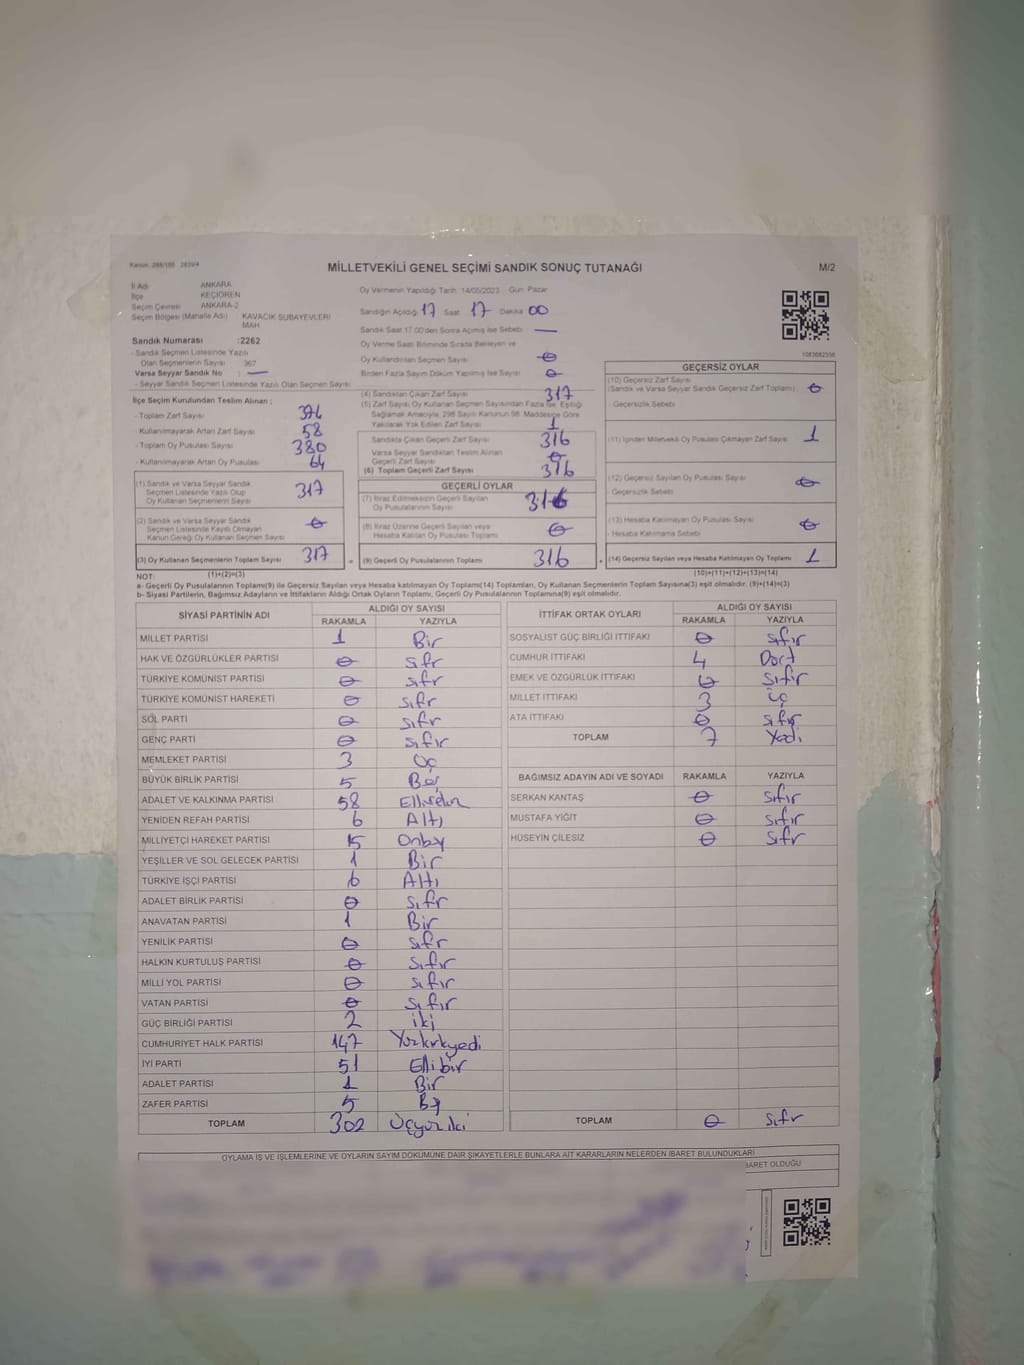 Kanun: 298/105 2839/4
MİLLETVEKİLİ GENEL SEÇİMİ SANDIK SONUÇ TUTANAĞI
M/2
İl Adı ANKARA
İlçe KEÇİÖREN
Seçim Çevresi ANKARA-2
Seçim Bölgesi (Mahalle Adı) KAVACIK SUBAYEVLERİ MAH
Sandık Numarası :2262
- Sandık Seçmen Listesinde Yazılı Olan Seçmenlerin Sayısı 367
Varsa Seyyar Sandık No : —
- Seyyar Sandık Seçmen Listesinde Yazılı Olan Seçmen Sayısı
İlçe Seçim Kurulundan Teslim Alınan ;
- Toplam Zarf Sayısı
- Kullanılmayarak Artan Zarf Sayısı 58
- Toplam Oy Pusulası Sayısı 380
- Kullanılmayarak Artan Oy Pusulası 64
(1) Sandık ve Varsa Seyyar Sandık Seçmen Listesinde Yazılı Olup Oy Kullanan Seçmenlerin Sayısı 317
(2) Sandık ve Varsa Seyyar Sandık Seçmen Listesinde Kayıtlı Olmayan Kanun Gereği Oy Kullanan Seçmenlerin Sayısı 0
(3) Oy Kullanan Seçmenlerin Toplam Sayısı 317
(1)+(2)=(3)
Oy Vermenin Yapıldığı Tarih 14/05/2023 Gün Pazar
Sandığın Açıldığı 17 Saat 17 Dakika 00
Sandık Saat 17.00'den Sonra Açılmış İse Sebebi —
Oy Verme Saati Bitiminde Sırada Bekleyen ve
Oy Kullandırılan Seçmen Sayısı 0
Birden Fazla Sayım Döküm Yapılmış İse Sayısı 0
(4) Sandıktan Çıkan Zarf Sayısı 317
(5) Zarf Sayısı, Oy Kullanan Seçmen Sayısından Fazla İse, Eşitliği
Sağlamak Amacıyla, 298 Sayılı Kanunun 98. Maddesine Göre
Yakılarak Yok Edilen Zarf Sayısı 1
Sandıkta Çıkan Geçerli Zarf Sayısı 316
Varsa Seyyar Sandıktan Teslim Alınan Geçerli Zarf Sayısı 0
(6) Toplam Geçerli Zarf Sayısı 316
GEÇERLİ OYLAR
(7) İtiraz Edilmeksizin Geçerli Sayılan Oy Pusulalarının Sayısı 316
(8) İtiraz Üzerine Geçerli Sayılan veya Hesaba Katılan Oy Pusulaları Toplamı 0
= (9) Geçerli Oy Pusulalarının Toplamı 316
1083682358
GEÇERSİZ OYLAR
(10) Geçersiz Zarf Sayısı
(Sandık ve Varsa Seyyar Sandık Geçersiz Zarf Toplamı) 0
- Geçersizlik Sebebi
(11) İçinden Milletvekili Oy Pusulası Çıkmayan Zarf Sayısı 1
(12) Geçersiz Sayılan Oy Pusulası Sayısı 0
Geçersizlik Sebebi
(13) Hesaba Katılmayan Oy Pusulası Sayısı 0
- Hesaba Katılmama Sebebi
+ (14) Geçersiz Sayılan veya Hesaba Katılmayan Oy Toplamı 1
(10)+(11)+(12)+(13)=(14)
NOT:
a- Geçerli Oy Pusulalarının Toplamı(9) ile Geçersiz Sayılan veya Hesaba katılmayan Oy Toplamı(14) Toplamları, Oy Kullanan Seçmenlerin Toplam Sayısına(3) eşit olmalıdır. (9)+(14)=(3)
b- Siyasi Partilerin, Bağımsız Adayların ve İttifakların Aldığı Ortak Oyların Toplamı, Geçerli Oy Pusulalarının Toplamına(9) eşit olmalıdır.
SİYASİ PARTİNİN ADI ALDIĞI OY SAYISI
RAKAMLA YAZIYLA
MİLLET PARTİSİ 1 Bir
HAK VE ÖZGÜRLÜKLER PARTİSİ 0 sıfr
TÜRKİYE KOMÜNİST PARTİSİ 0 sıfr
TÜRKİYE KOMÜNİST HAREKETİ 0 sıfr
SOL PARTİ 0 sıfr
GENÇ PARTİ 0 sıfır
MEMLEKET PARTİSİ 3 Üç
BÜYÜK BİRLİK PARTİSİ 5 Beş
ADALET VE KALKINMA PARTİSİ 58 Ellisekız
YENİDEN REFAH PARTİSİ 6 Altı
MİLLİYETÇİ HAREKET PARTİSİ 15 Onbeş
YEŞİLLER VE SOL GELECEK PARTİSİ 1 Bir
TÜRKİYE İŞÇİ PARTİSİ 6 Altı
ADALET BİRLİK PARTİSİ 0 sıfr
ANAVATAN PARTİSİ 1 Bir
YENİLİK PARTİSİ 0 sıfr
HALKIN KURTULUŞ PARTİSİ 0 sıfır
MİLLİ YOL PARTİSİ 0 sıfır
VATAN PARTİSİ 0 sıfır
GÜÇ BİRLİĞİ PARTİSİ 2 iki
CUMHURİYET HALK PARTİSİ 147 Yüzkırkyedi
İYİ PARTİ 51 Ellibir
ADALET PARTİSİ 1 Bir
ZAFER PARTİSİ 5 Beş
TOPLAM 302 Üçyüziki
İTTİFAK ORTAK OYLARI ALDIĞI OY SAYISI
RAKAMLA YAZIYLA
SOSYALİST GÜÇ BİRLİĞİ İTTİFAKI 0 sıfır
CUMHUR İTTİFAKI 4 Dört
EMEK VE ÖZGÜRLÜK İTTİFAKI 0 sıfır
MİLLET İTTİFAKI 3 üç
ATA İTTİFAKI 0 sıfır
TOPLAM 7 Yedi
BAĞIMSIZ ADAYIN ADI VE SOYADI RAKAMLA YAZIYLA
SERKAN KANTAŞ 0 sıfır
MUSTAFA YİĞİT 0 sıfır
HÜSEYİN ÇİLESİZ 0 sıfr
TOPLAM 0 sıfr
OYLAMA İŞ VE İŞLEMLERİNE VE OYLARIN SAYIM DÖKÜMÜNE DAİR ŞİKAYETLERLE BUNLARA AİT KARARLARIN NELERDEN İBARET BULUNDUKLARI
BARET OLDUĞU